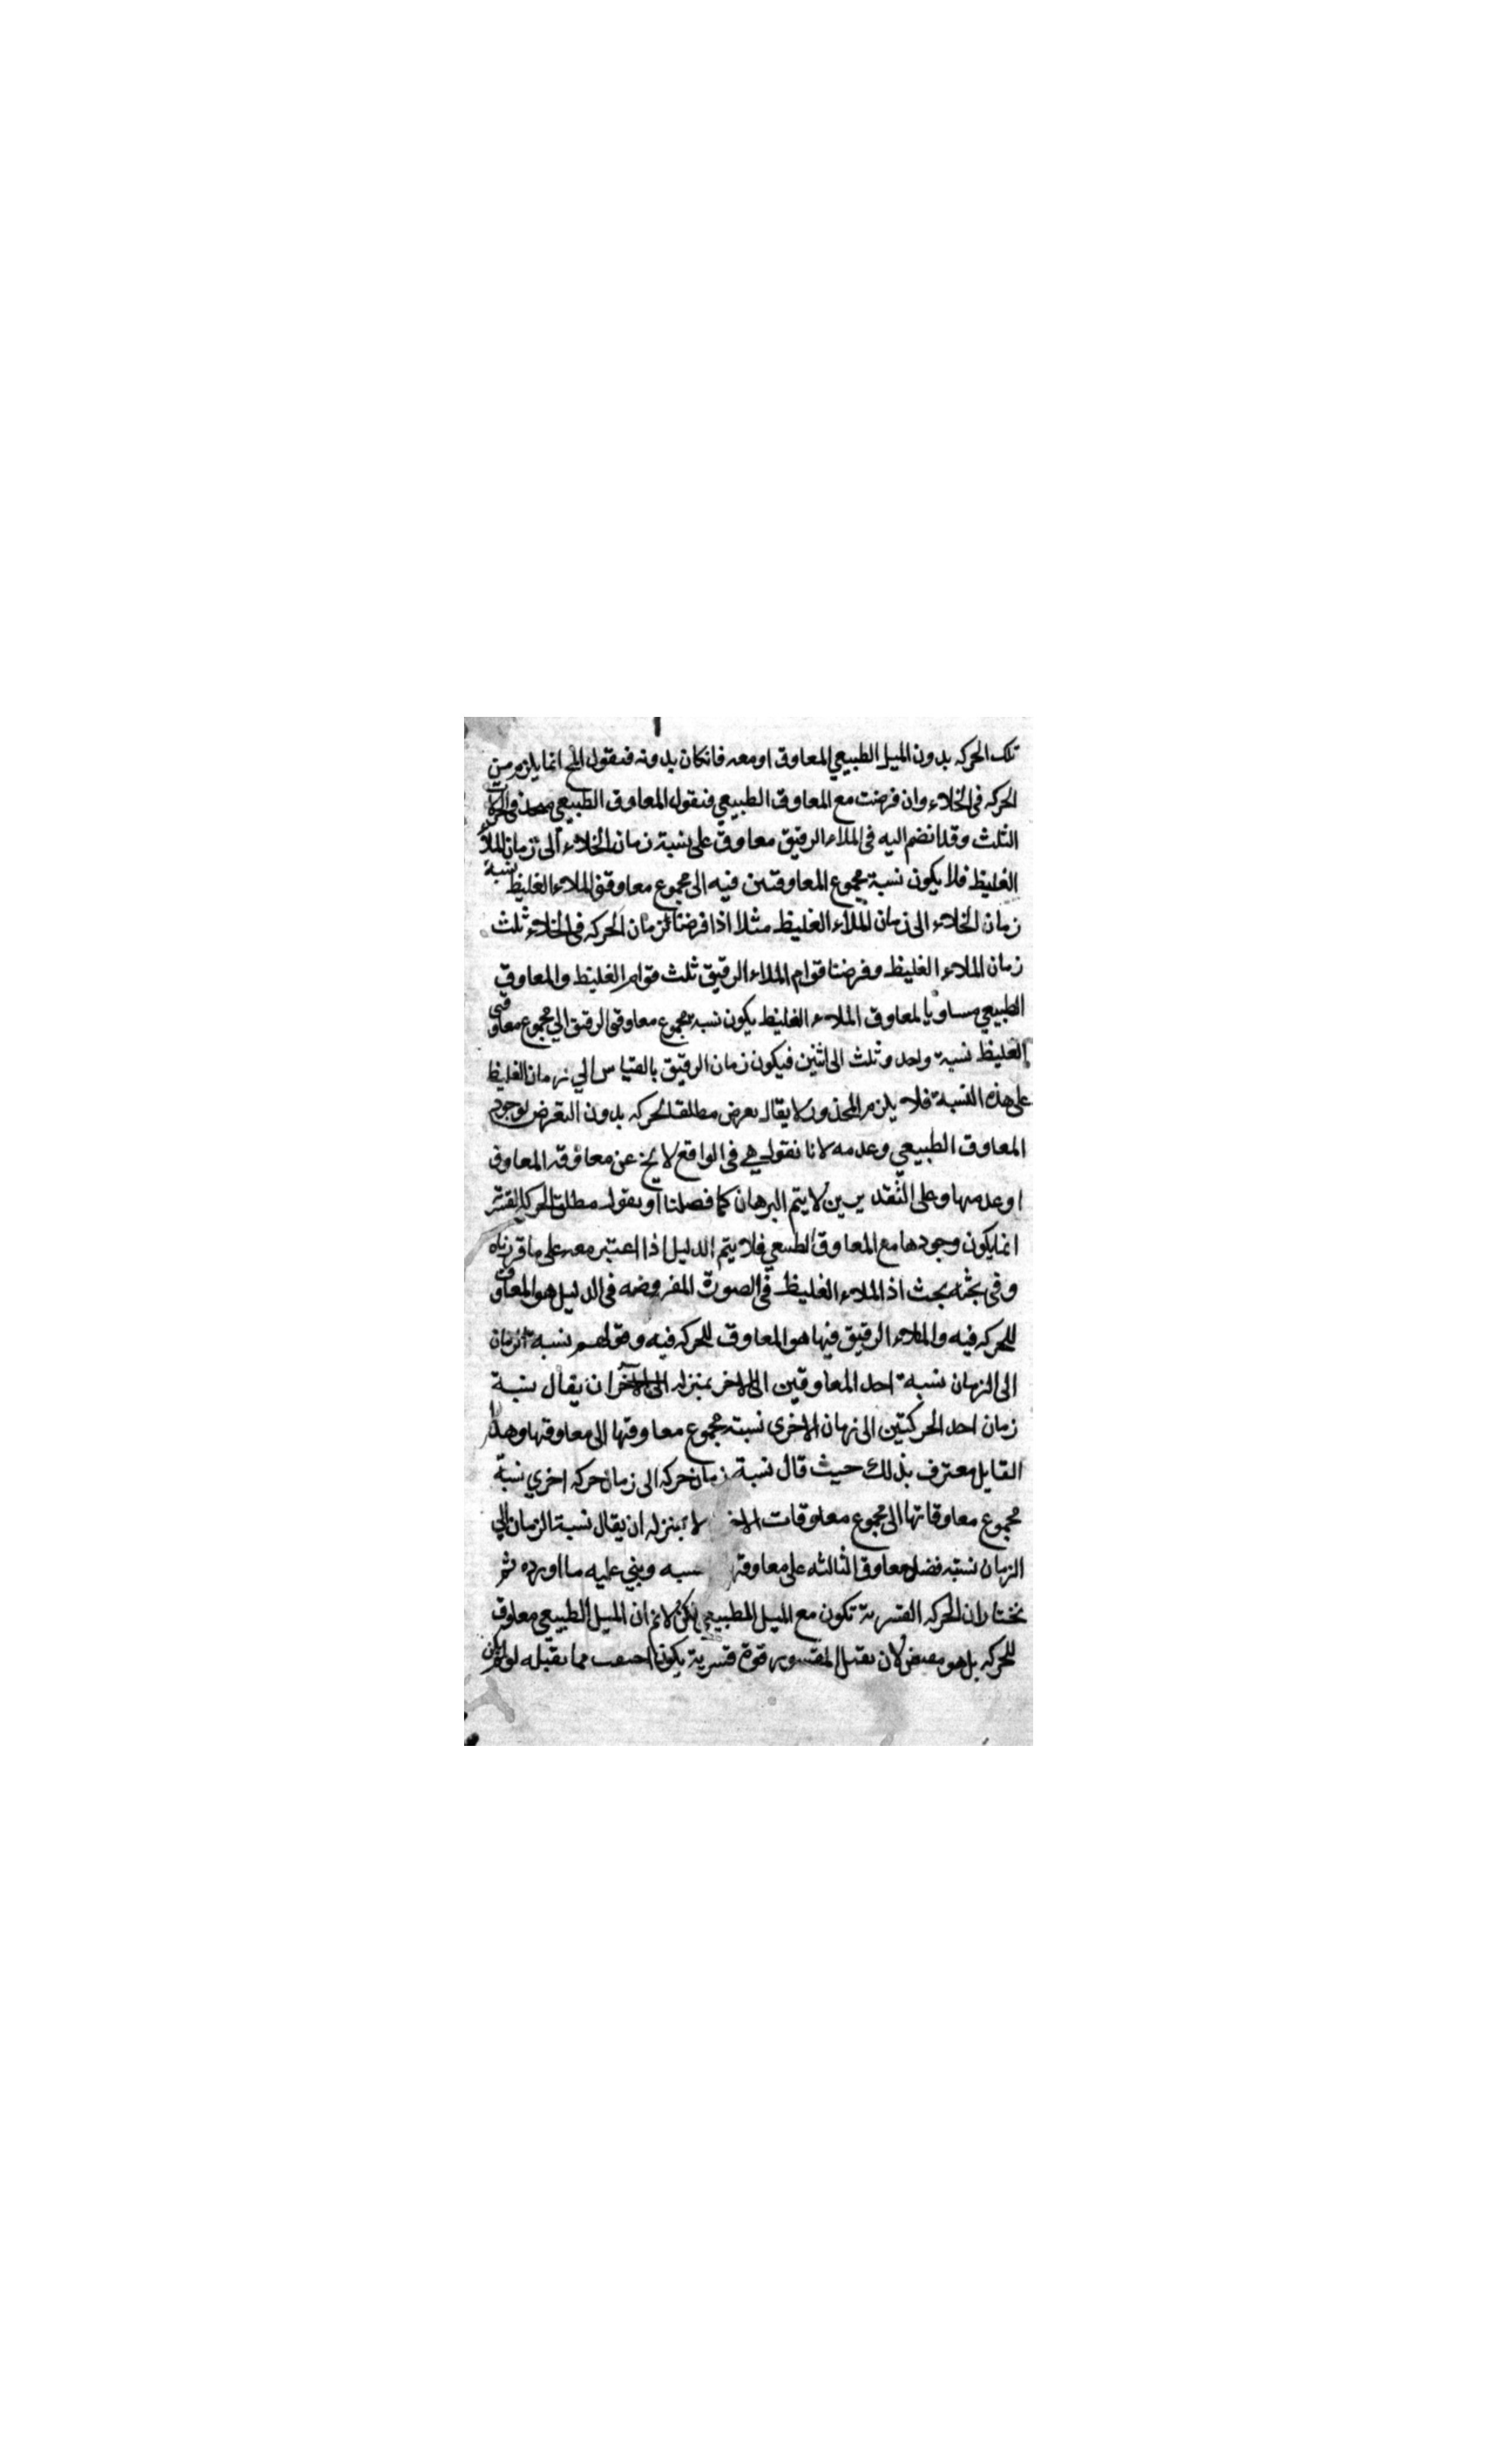 تلك الحركه بدون الميل الطبيعي المعاوق اومعه فانكان بدونه فنقول المح انما يلزم من
الحركه فى الخلاء وان فرضت مع المعاوق الطبيعي فنقول المعاوق الطبيعي
الثلث وقد انضم اليه فى الملاء الرقيق معاوق على نسبة زمان الخلاء الى زمان الملأ
الغليظ فلا يكون نسبة مجموع المعاوقتين فيه الى مجموع معاوقتى الملاء الغليظ نسبة
زمان الخلاء الى زمان الملاء الغليظ مثلا اذا فرضنا زمان الحركه فى الخلاء ثلث
زمان الملاء الغليظ وفرضنا قوام الملاء الرقيق ثلث قوام الغليظ والمعاوق
الطبيعي مساويا لمعاوق الملاء الغليظ يكون نسبة مجموع معاوقى الرقيق الي مجموع معاوقى
الغليظ نسبة واحد وثلث الى اثنين فيكون زمان الرقيق بالقياس الي زمان الغليظ
على هذه النسبة فلا يلزم المحذور لا يقال نعرض مطلق الحركه بدون التعرض لوجود
المعاوق الطبيعي وعدمه لانا نقول هي فى الواقع لا يخ عن معاوقه المعاوق
او عدمها وعلى التقديرين لا يتم البرهان كما فصلنا او نقول مطلق الحركه القسر
انما يكون وجودها مع المعاوق الطبيعي فلا يتم الدليل اذا اعتبر معه على ما قررناه
وفى بحثه بحث اذ الملاء الغليظ فى الصورة المفروضه فى الدليل هو المعاوق
للحركه فيه والملاء الرقيق فيها هو المعاوق للحركه فيه وقولهم نسبة الزمان
الى الزمان نسبة احد المعاوقين الى الاخر بمنزله ان يقال نسبة
زمان احد الحركتين الى زمان الاخرى نسبة مجموع معاوقتها الى معاوقتها وهذا
القايل معترف بذلك حيث قال نسبة زمان حركه الى زمان حركه اخري نسبة
مجموع معاوقاتها الى مجموع معاوقات الاخ لا بمنزله ان يقال نسبة الزمان الي
الزمان نسبة فضل معاوق الثالثه على معاوقة وبني عليه ما اورده ثم
نختار ان الحركه القسرية تكون مع الميل الطبيعي لكن لانم ان الميل الطبيعي معاوق
للحركه بل هو مقتض لان يقبل المقسور قوة قسرية يكون اضعف مما يقبله لو لم يكن